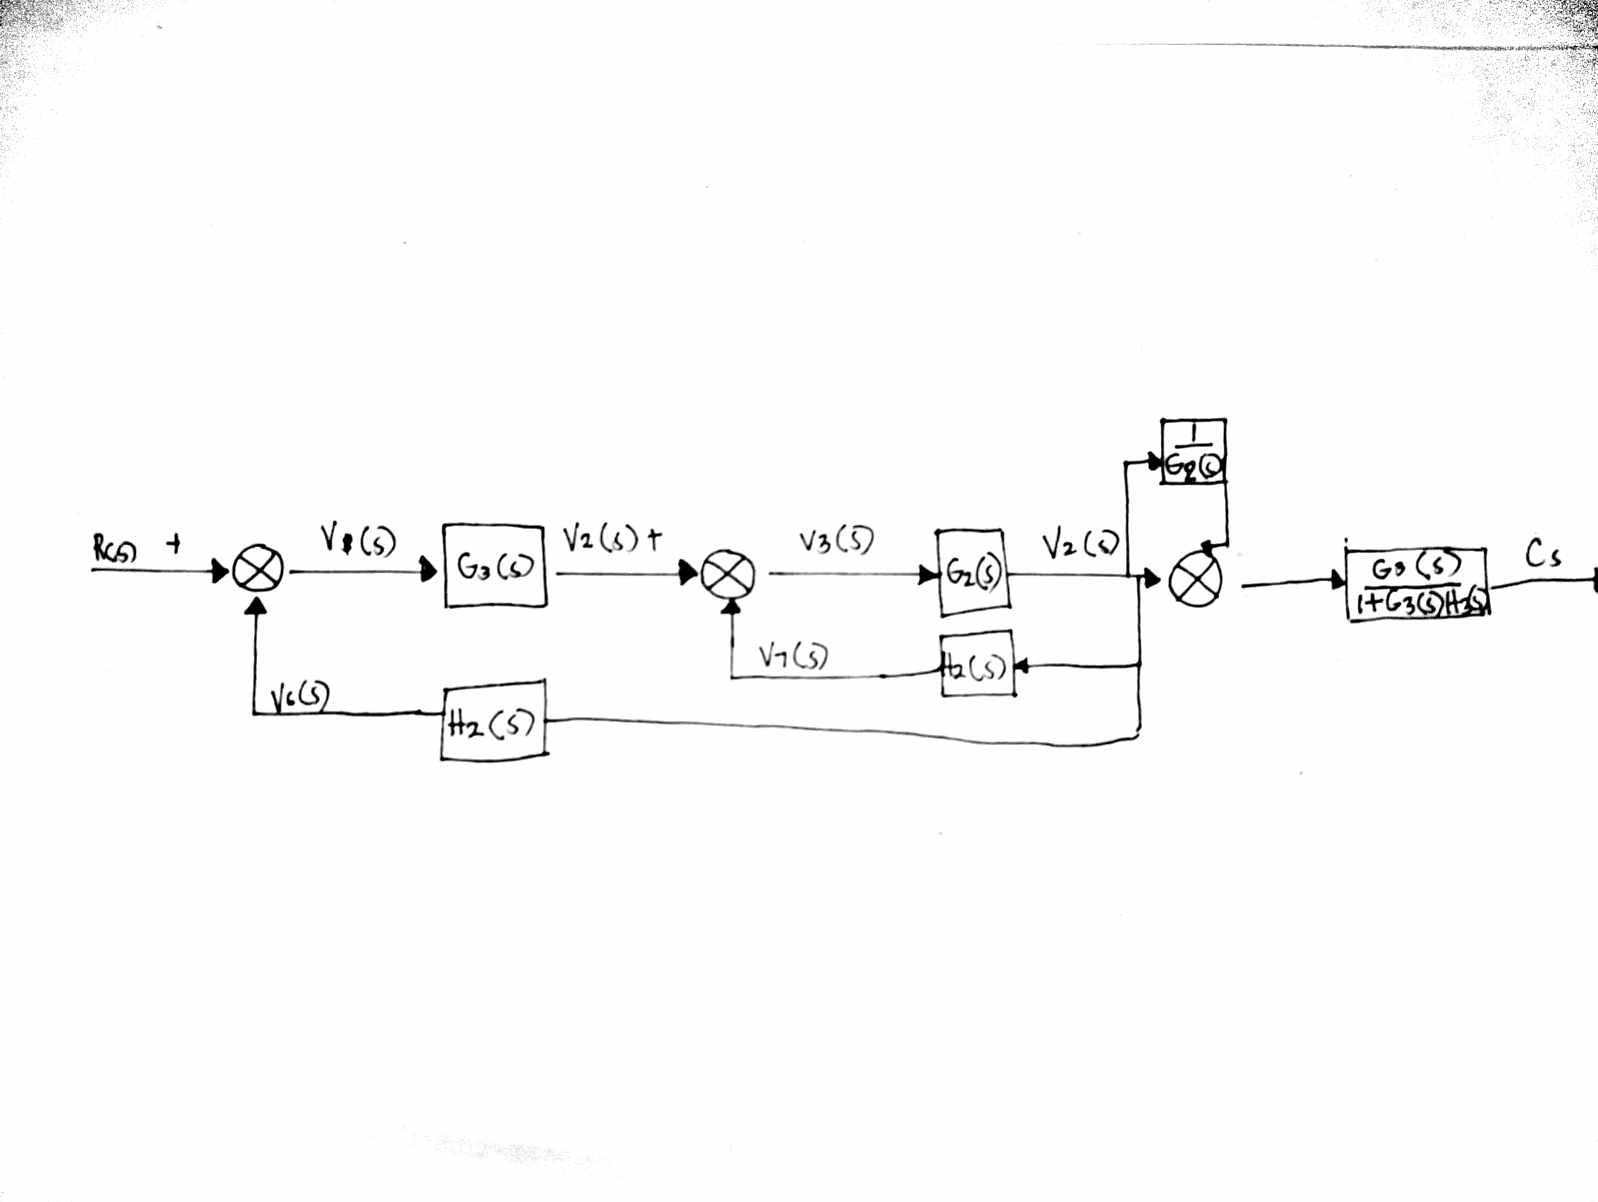 1
G2(s)
R(s) +
V1(s)
G3(s)
V2(s) +
V3(s)
G2(s)
V2(s)
G3(s)
1+G3(s)H3(s)
Cs
V7(s)
H2(s)
V6(s)
H2(s)